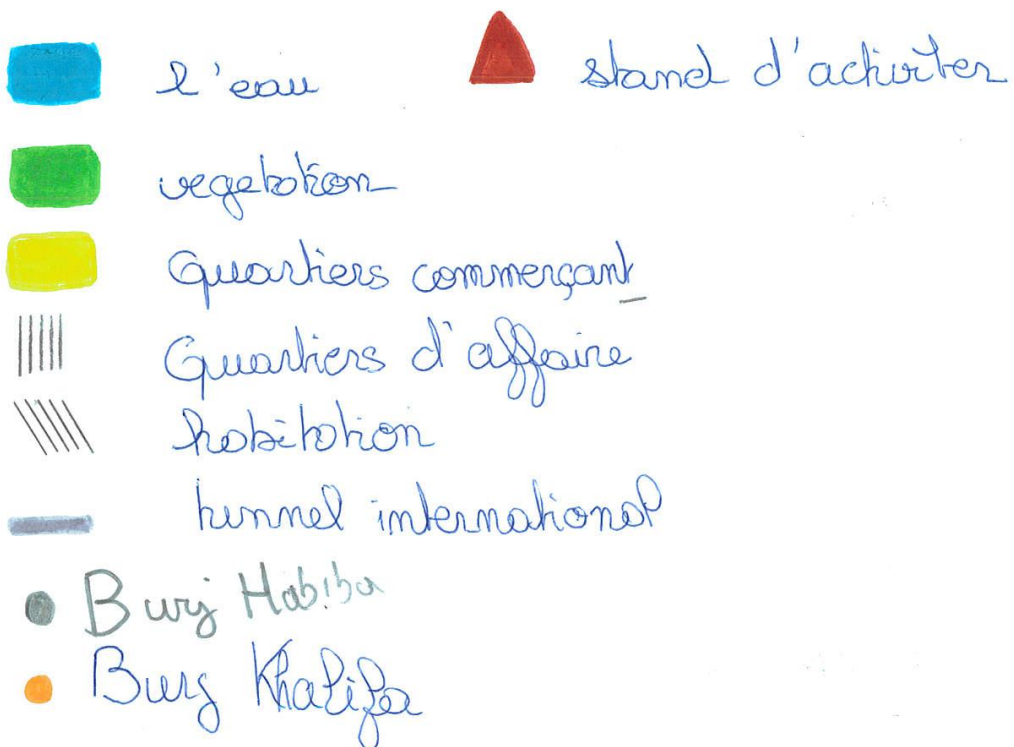 l'eau
stand d'activiter
vegetation
Quartiers commerçant
Quartiers d'affaire
habitation
tunnel international
Burj Habiba
Burj Khalifa